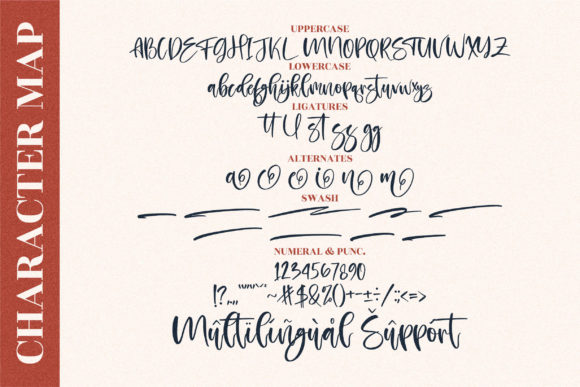 CHARACTER MAP
UPPERCASE
ABCDEFGHIJKLMNOPQRSTUVWXYZ
LOWERCASE
abcdefghijklmnopqrstuvwxyz
LIGATURES
tt ll st ss gg
ALTERNATES
a c e i n m
SWASH
NUMERAL & PUNC.
1234567890
~#$&%()+-±÷/:;<=>
Mûltïlíñgùål Šûppórt